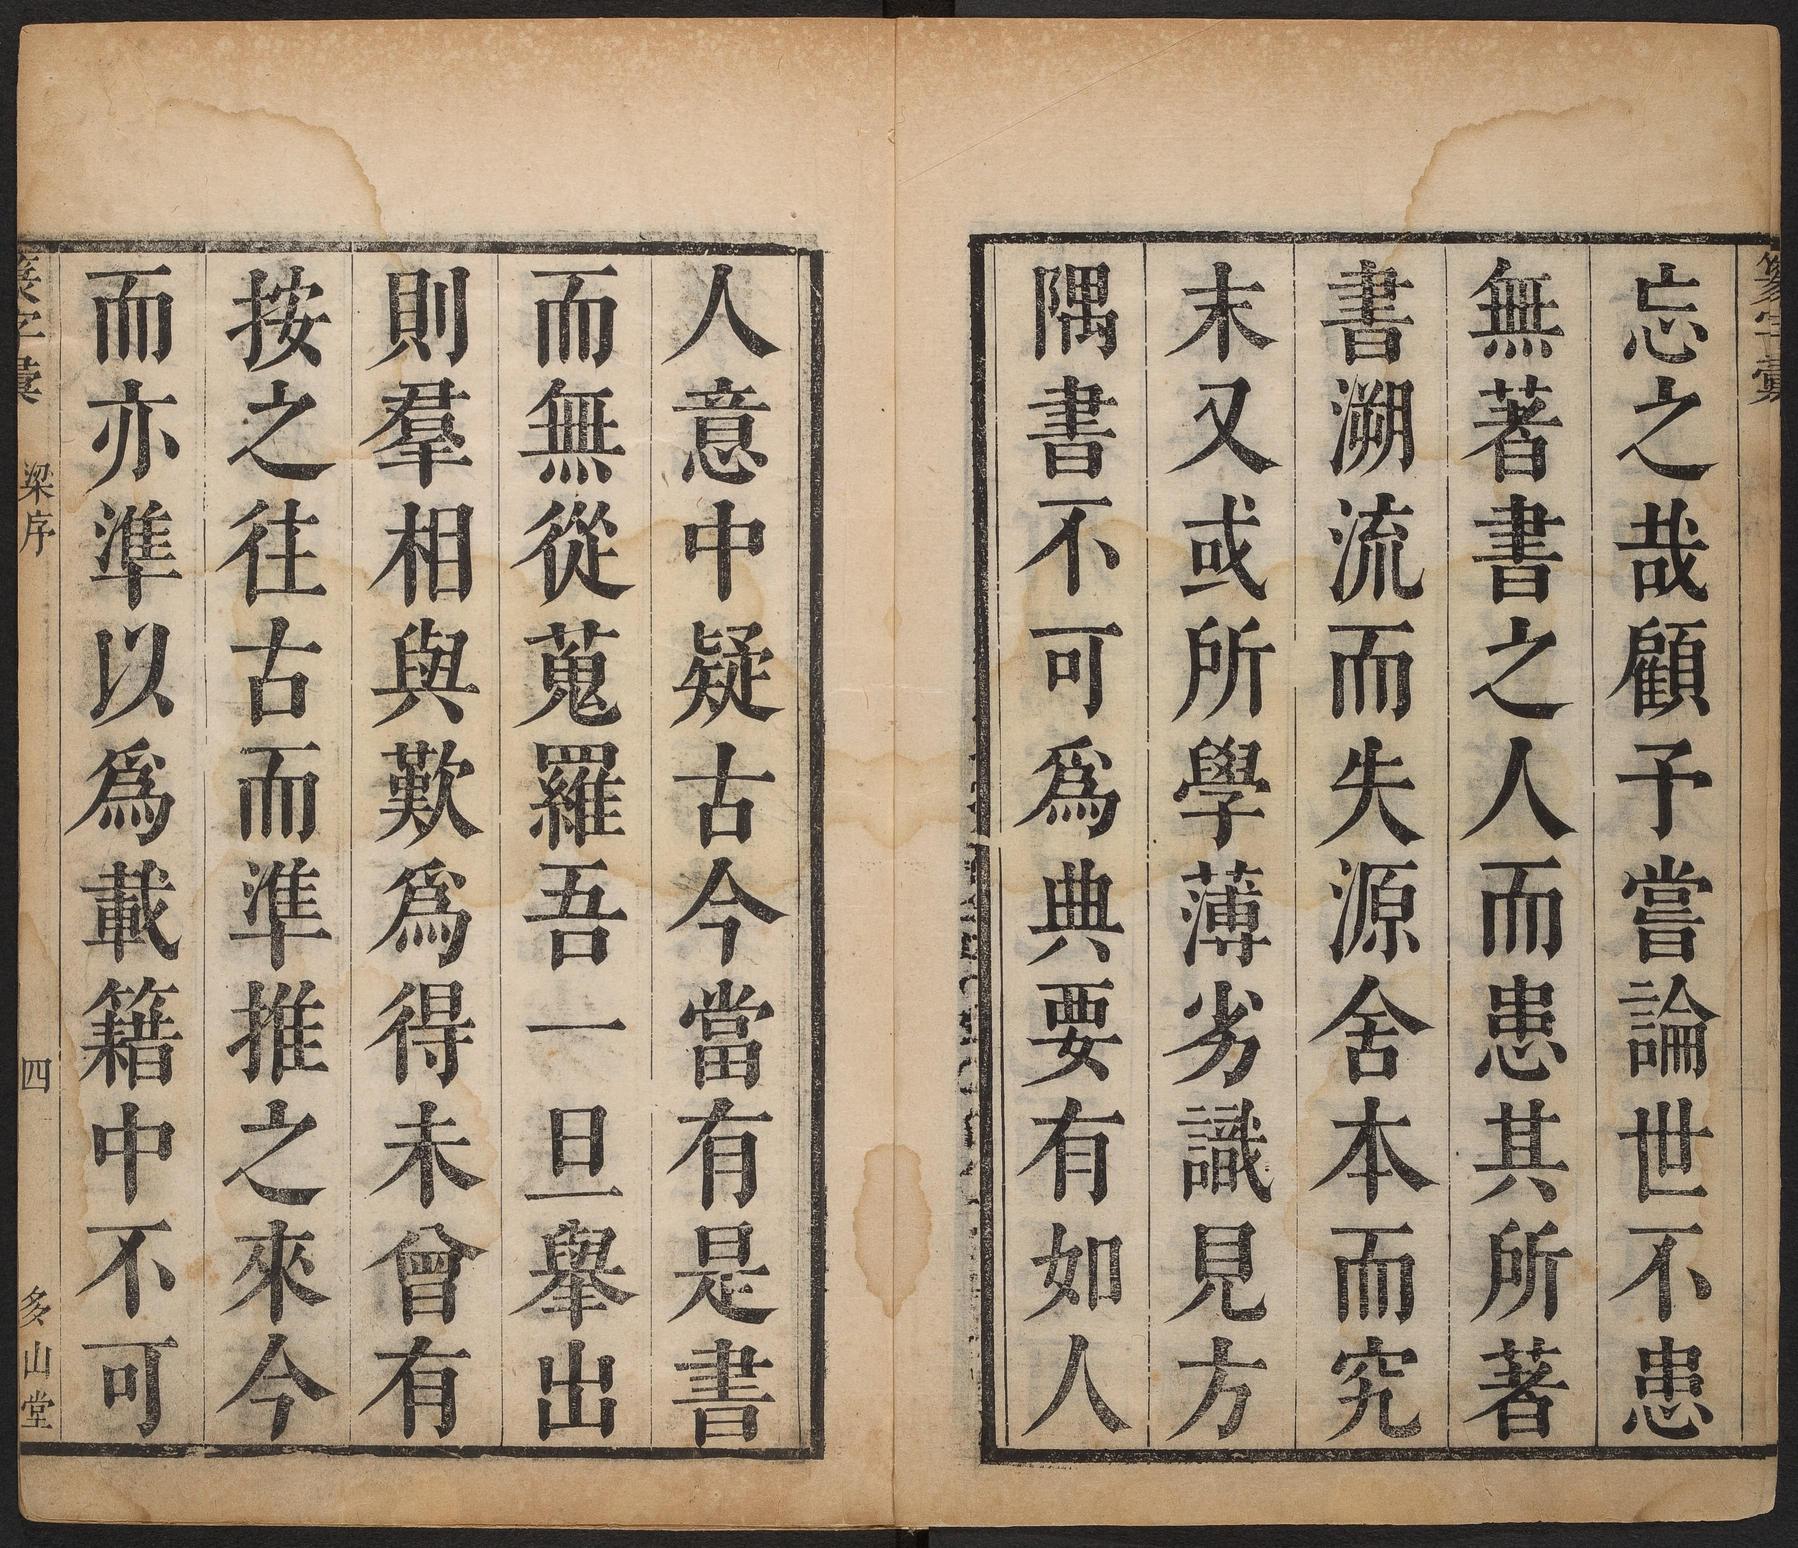 篆字彙
忘之哉顧予嘗論世不患
無著書之人而患其所著
書溯流而失源舍本而究
末又或所學薄劣識見方
隅書不可爲典要有如人
人意中疑古今當有是書
而無從蒐羅吾一旦舉出
則羣相與歎爲得未曾有
按之往古而準推之來今
而亦準以爲載籍中不可
篆字彙 梁序 四 多山堂